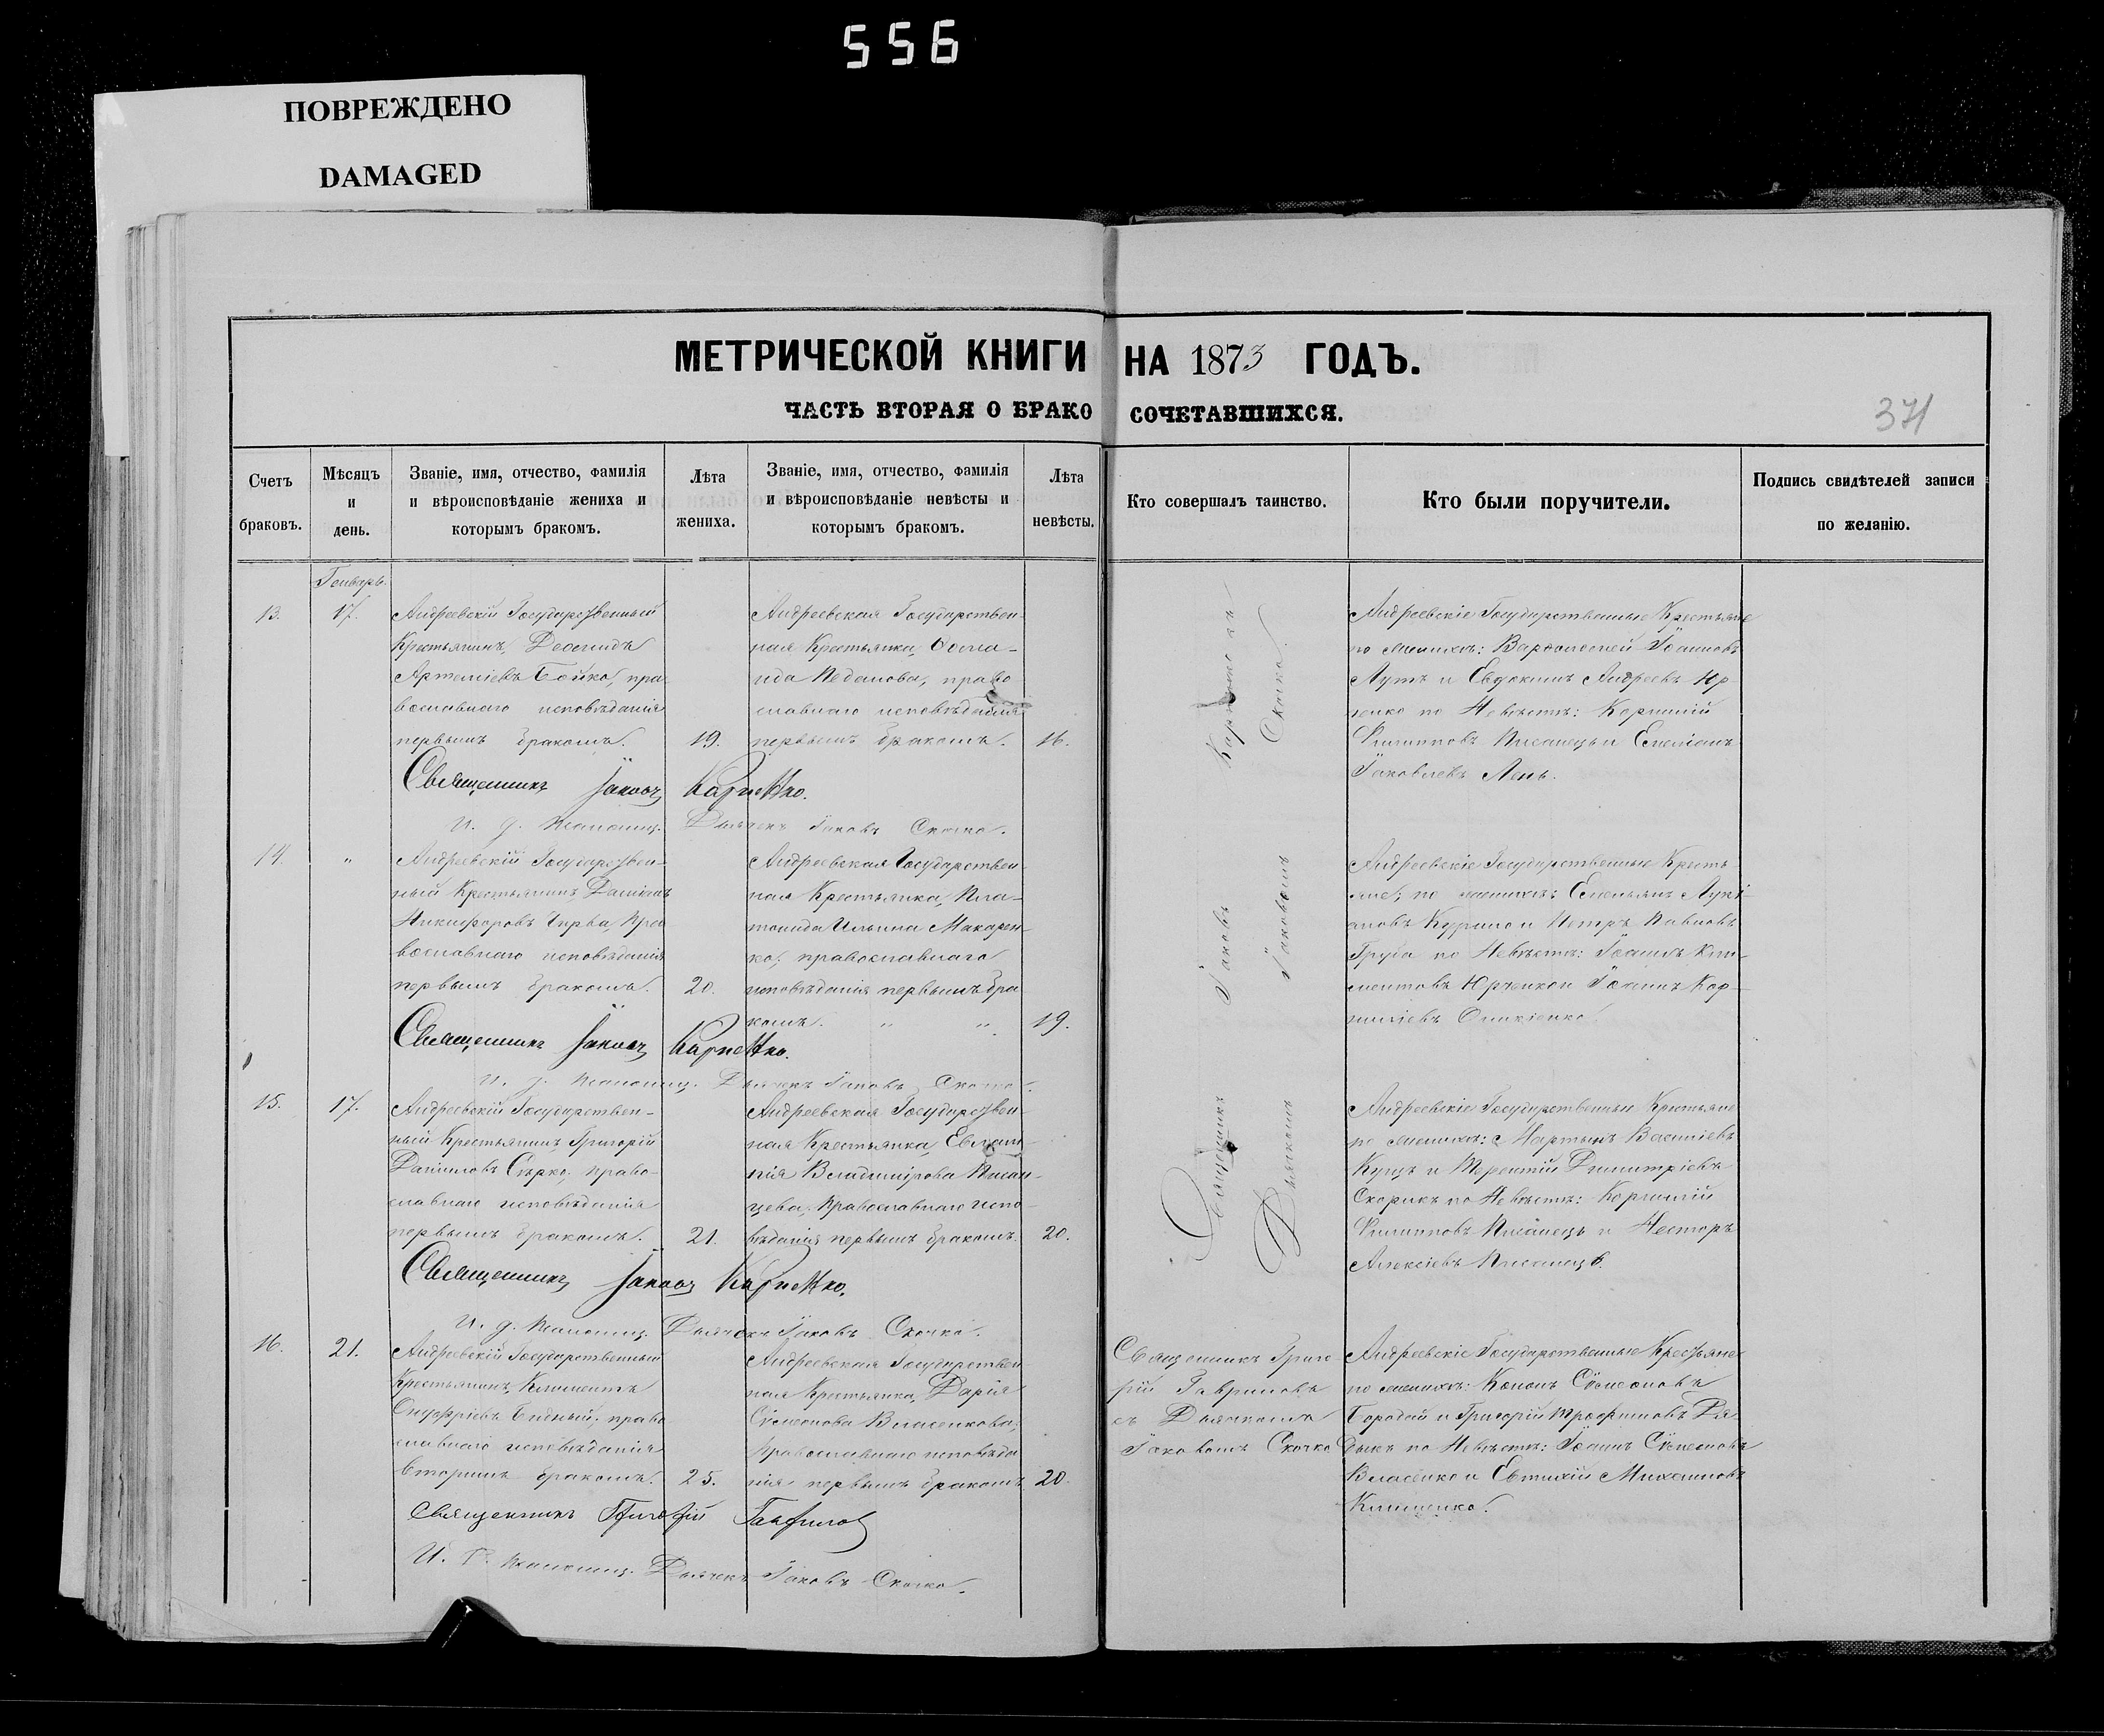 556
ПОВРЕЖДЕНО
DAMAGED
МЕТРИЧЕСКОЙ КНИГИ НА 1873 ГОДЪ.
ЧАСТЬ ВТОРАЯ О БРАКОСОЧЕТАВШИХСЯ.
371
Счетъ браковъ.
Мѣсяцъ и день.
Званіе, имя, отчество, фамилія
и вѣроисповѣданіе жениха и
которымъ бракомъ.
Лѣта жениха.
Званіе, имя, отчество, фамилія
и вѣроисповѣданіе невѣсты и
которымъ бракомъ.
Лѣта невѣсты.
Кто совершалъ таинство.
Кто были поручители.
Подпись свидѣтелей записи
по желанію.
13.
17.
Андреевскій Государственный
Крестьянинъ,
Артеміевъ Бойко, пра
вославнаго исповѣданія
первымъ бракомъ.
19.
Андреевская Государствен-
ная Крестьянка,
право
славнаго исповѣданія
первымъ бракомъ.
16.
Андреевскіе Государственные Крестьяне
по женихѣ: Іоанновъ
Лутъ и Евдокимъ Андреевъ Юр-
ченко по Невѣстѣ: Корнилій
Филипповъ Писанецъ и Емеліанъ
Іаковлевъ Лень.
Священникъ Іаковъ Карпенко.
И. д. Псаломщ. Дьячекъ Іаковъ Скочко.
14.
"
Андреевскій Государствен-
ный Крестьянинъ, Даніилъ
Никифоровъ Пра
вославнаго исповѣданія
первымъ бракомъ.
20.
Андреевская Государствен
ная Крестьянка, Пла-
тонида Ильина Макарен-
ко, православнаго
исповѣданія первымъ бра
комъ. " "
19.
Андреевскіе Государственные Кресть
яне; по женихѣ: Емельянъ Лукі
ановъ и Петръ Павловъ
Груба по Невѣстѣ: Іоаннъ Кли-
ментовъ Юрченко и Іоаннъ Кор-
ниліевъ
Священникъ Іаковъ Карпенко.
И. д. Псаломщ. Дьячекъ Іаковъ Скочко.
15.
17.
Андреевскій Государствен-
ный Крестьянинъ Григорій
Даніиловъ Сѣрко, право-
славнаго исповѣданія
первымъ бракомъ.
21.
Андреевская Государствен-
ная Крестьянка, Евлам-
пія Владимірова Писан-
цева, Православнаго испо-
вѣданія первымъ бракомъ.
20.
Священникъ Іаковъ Карпенко
Дьячкомъ Іаковомъ Скочко.
Андреевскіе Государственные Крестьяне
по женихѣ: Мартынъ Василіевъ
Куцъ и Терентій Димитріевъ
Скорикъ по Невѣстѣ: Корнилій
Филипповъ Писанецъ и Несторъ
Алексіевъ Писанецъ.
Священникъ Іаковъ Карпенко.
И. д. Псаломщ. Дьячекъ Іаковъ Скочко.
16.
21.
Андреевскій Государственный
Крестьянинъ, Климентъ
Онуфріевъ Бидный, право
славнаго исповѣданія
вторымъ бракомъ.
25.
Андреевская Государствен
ная Крестьянка, Дарія
Сѵмеонова Власенкова,
православнаго исповѣда
нія первымъ бракомъ
20.
Священникъ Григо
рій Гавриловъ
съ Дьячкомъ
Іаковомъ Скочко
Андреевскіе Государственные Крестьяне
по женихѣ: Кононъ Сѵмеоновъ
Бородай и Григорій Трофимовъ Дя
дыкъ по Невѣстѣ: Іоаннъ Сѵмеоновъ
Власенко и Евтихій Михаиловъ
Клименко.
Священникъ Григорій Гавриловъ
И. д. Псаломщ. Дьячекъ Іаковъ Скочко.